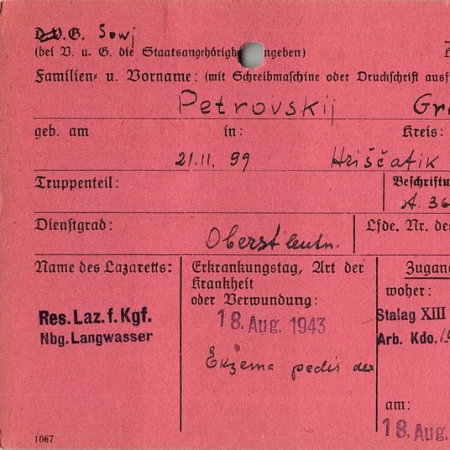 D.V.G. Sowj
(bei V. u. G. die Staatsangehörigk angeben)
Familien- u. Vorname: (mit Schreibmaschine oder Druckschrift ausf
Petrovskij Gr
geb. am in: Kreis:
21.11.99 Hriščatik
Truppenteil: Beschriftu
A. 36
Dienstgrad: Lfde. Nr. de
Oberstleutn.
Name des Lazaretts: Erkrankungstag, Art der Krankheit oder Verwundung: Zugang
woher:
Res. Laz. f. Kgf. 18. Aug. 1943 Stalag XIII
Nbg. Langwasser Arb. Kdo.
Ekzema pedis
am:
18. Aug.
1067